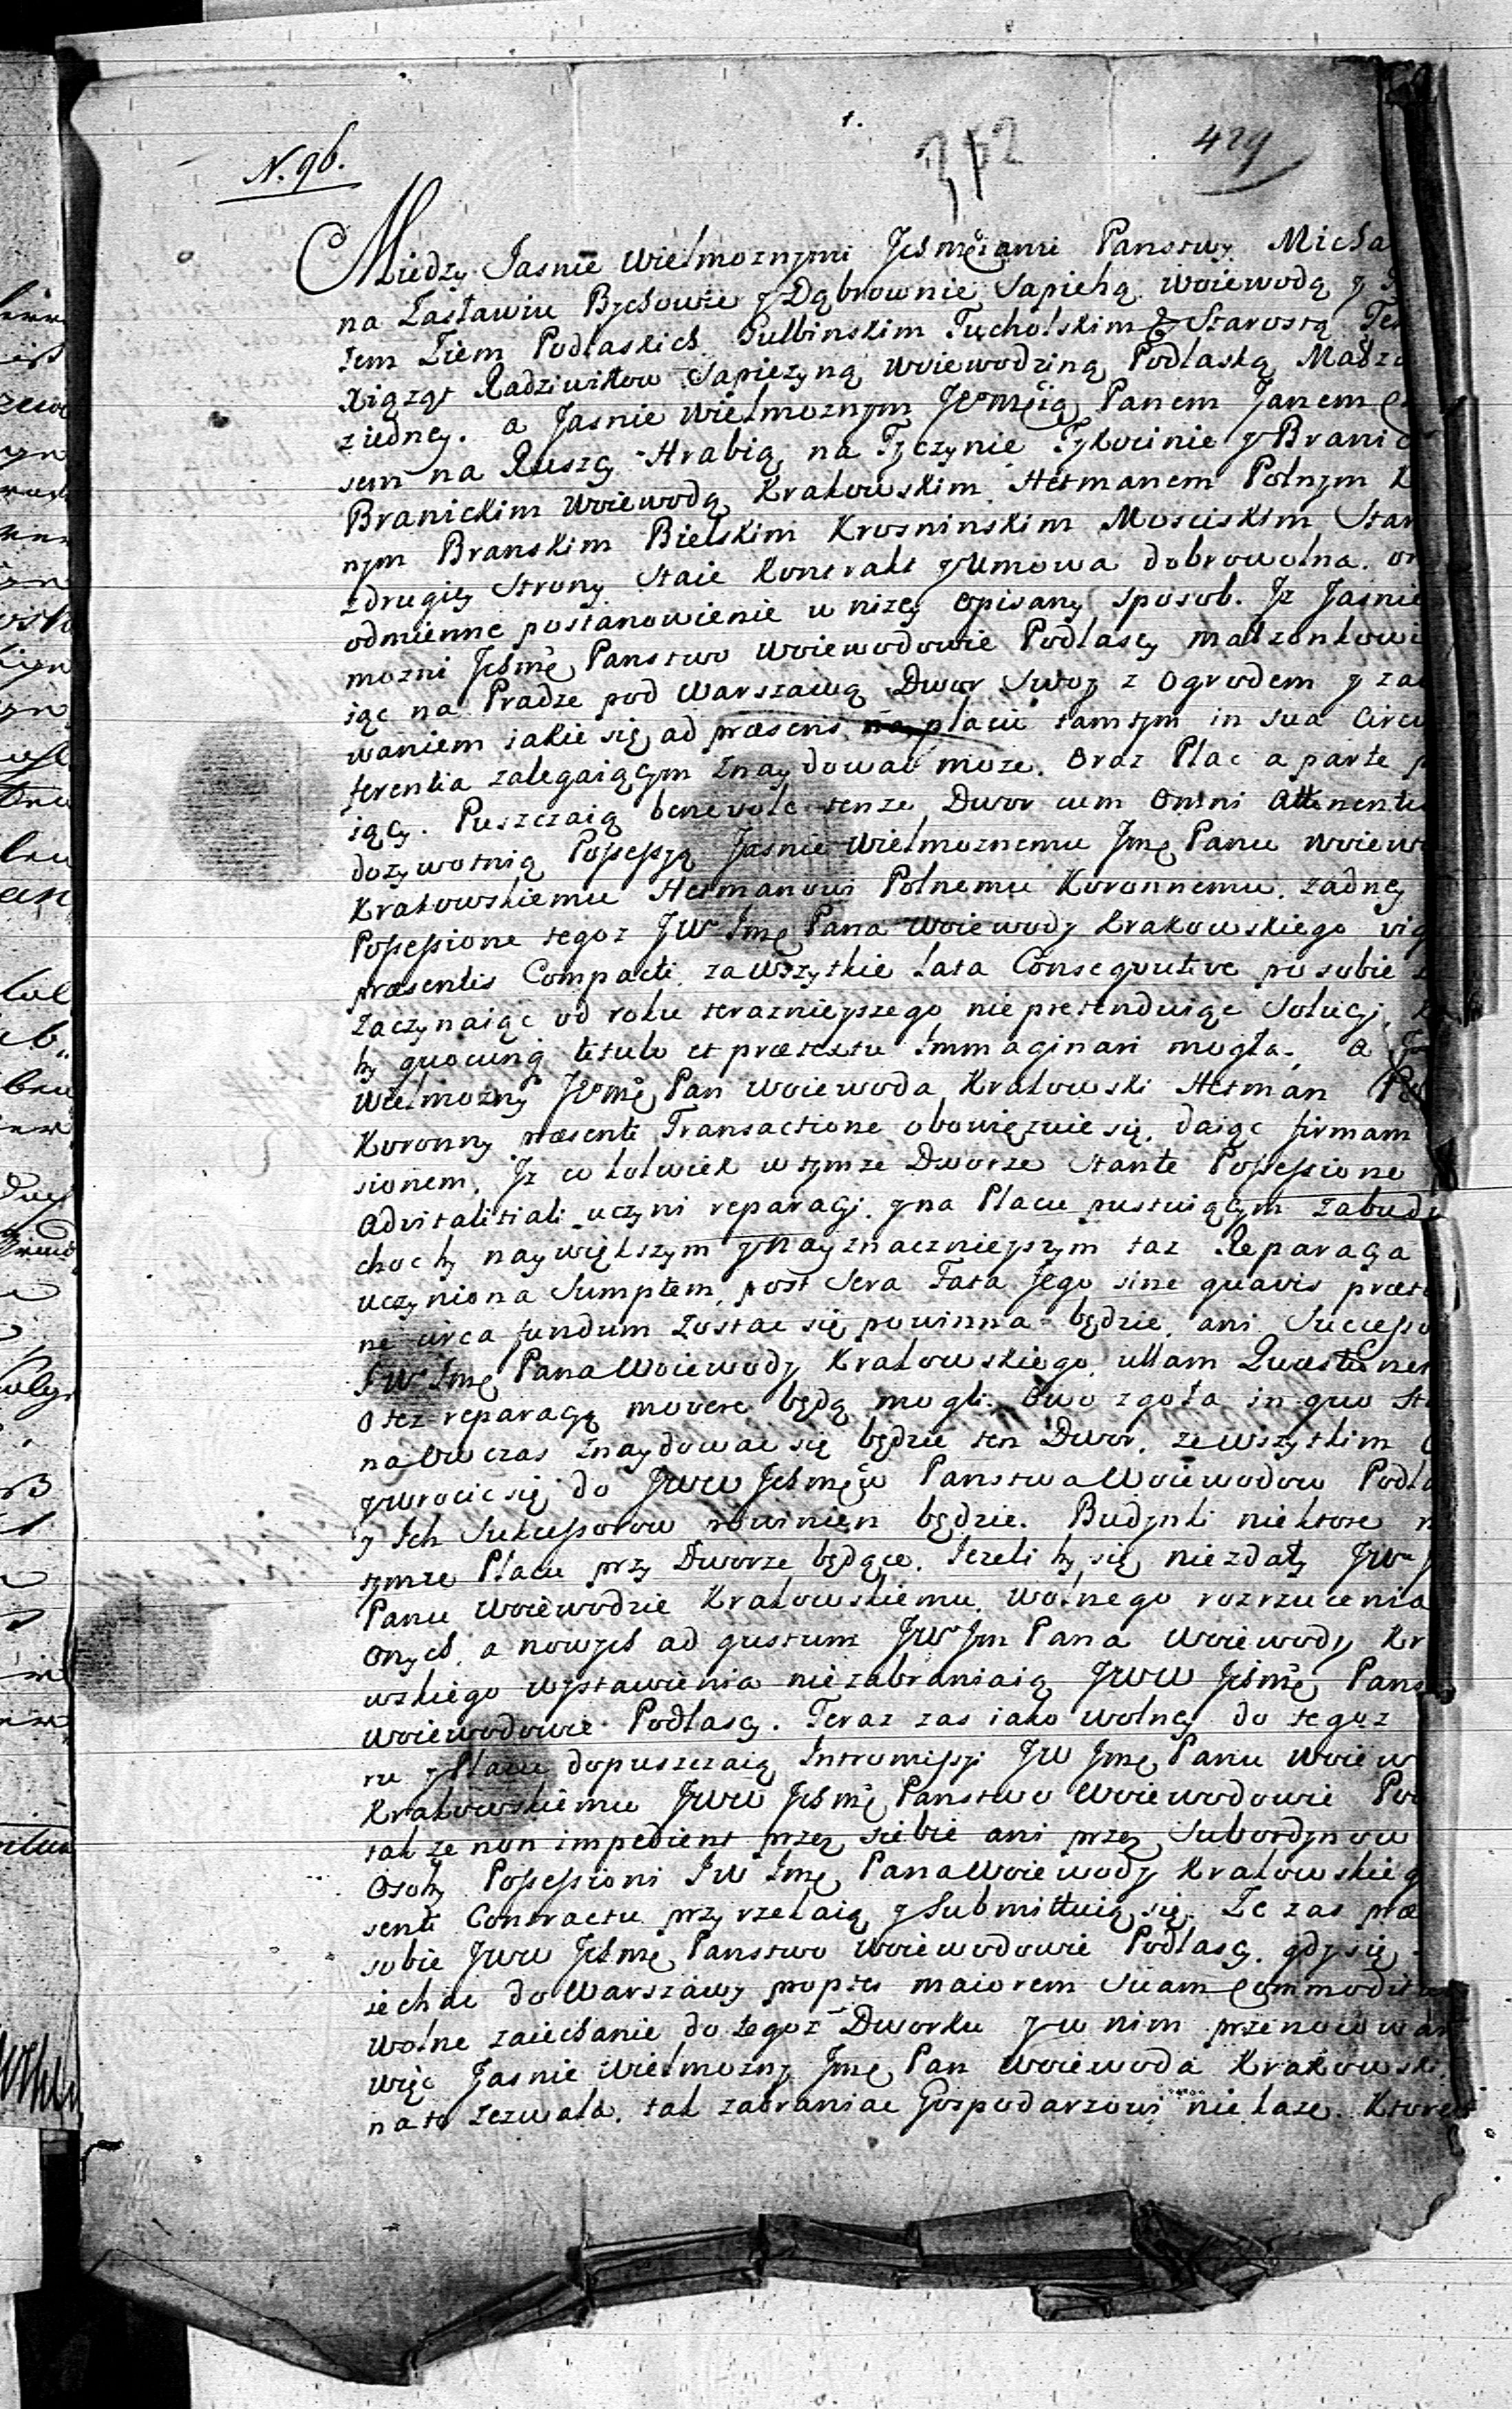 N. 96.
1.
362
429
Miedzy Jasnie Wielmoznymi Jchmciami Panstwy Micha
na Zasławiu Bychowie y Dąbrownie Sapiehą Woiewodą y
tem Ziem Podlaskich Gulbinskim Tucholskim & Starostą
Xiąząt Radziwiłow Sapiezyną Woiewodziną Podlaską Małzo
z iedney. a Jasnie Wielmoznym Jego Mcią Panem Janem
sem na Ruszcy Hrabią na Tyczynie Tykocinie y Branic
Branickim Woiewodą Krakowskim Hetmanem Polnym K
nym Branskim Bielskim Krosninskim Mosciskim Star
z drugiey Strony Staie Kontrakt y Umowa dobrowolna. or
odmienne postanowienie w nizey opisany sposob. Jz Jasnie
mozni Jchmc Panstwo Woiewodowie Podlascy małzonkowie
iąc na Pradze pod Warszawą Dwor Swoy z Ogrodem y za
waniem iakie się ad præsens na placu tamtym in sua Circu
ferentia zalegaiącym Znaydować moze. Oraz Plac a parte p
iący. Puszczaią benevole tenze Dwor cum Omni Attinentia
dozywotnią Possessyą Jasnie Wielmoznemu Jmc Panu Woiewo
Krakowskiemu Hetmanowi Polnemu Koronnemu. zadney
Possessione tegoz JW Jmc Pana Woiewody Krakowskiego vig
præsentis Compacti. za wszytkie Lata Consequutive po sobie
Zaczynaiąc od roku teraznieyszego niepretenduiąc Solucyi.
by quocunq titulo et prætextu Immaginari mogła. a
Wielmozny Jego Mc Pan Woiewoda Krakowski Hetman Pol
Koronny præsenti Transactione obowięzuie się. daiąc firmam
sionem. Jz cokolwiek w tymze Dworze Stante Possessione
Advitalitiali uczyni reparacyi. y na Placu pustuiącym zabudo
choc by naywiększym y Nayznacznieyszym taz Reparacya
uczyniona Sumptem, post Sera Fata Jego sine quavis præte
ne circa fundum Zostac się powinna będzie. ani Successo
JW Jmc Pana Woiewody Krakowskiego ullam Quæstionem
o tez reparacyą movere będą mogli. Owo zgoła in quo St
na tenczas znaydowac się będzie ten Dwor. ze wszytkim
y wrocic się do JWW Jchmciow Panstwa Woiewodow Podla
y Ich Sukcessorow powinien będzie. Budynki niektore n
tymze Placu przy Dworze będące. Jezeli by się niezdały JW
Panu Woiewodzie Krakowskiemu. wolnego rozrzucenia
Onych. a nowych ad gustum JW Jm Pana Woiewody Kr
wskiego wystawienia niezabraniaią JWW Jchmc Pans
Woiewodowie Podlascy. Teraz zas iako wolney do tegoz
ru y Placu dopuszczaią Intromissyi JW Jmc Panu Woiew
Krakowskiemu JWW Jchmc Panstwo Woiewodowie Pod
tak ze non impedient przez siebie ani przez Subordynow
Osoby Possessioni JW Jmc Pana Woiewody Krakowskieg
senti Contractu przyrzekaią y Submittuią się. Ze zas præ
sobie JWW Jchmc Panstwo Woiewodowie Podlascy. gdy się
iechac do Warszawy propter maiorem Suam Commodit
wolne zaiechanie do tegoz Dworku y w nim przenocowan
więc Jasnie Wielmozny Jmc Pan Woiewoda Krakowski.
na to zezwala. tak zabraniac Gospodarzowi nie kaze. Ktore